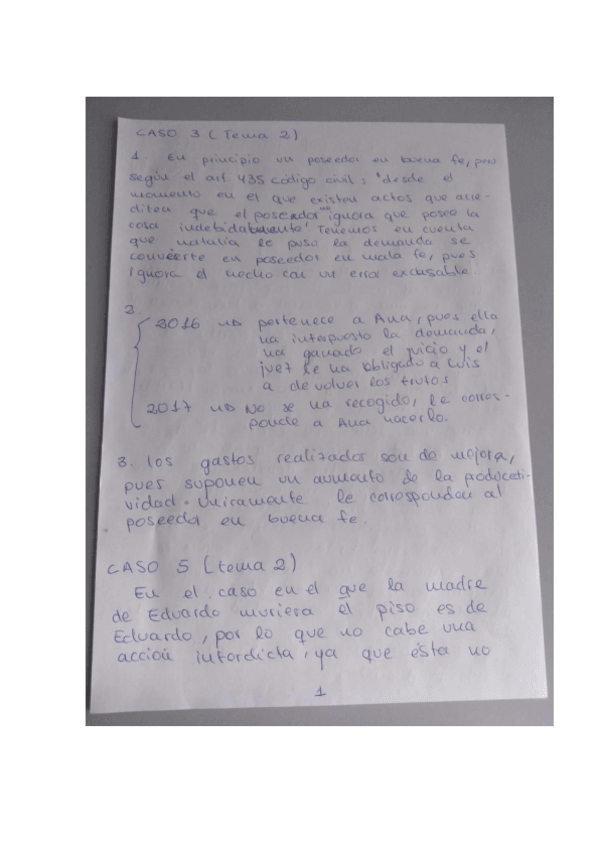 CASO 3 (Tema 2)
1 En principio un poseedor en buena fe, pero
según el art. 435 código civil: "desde el
momento en el que existen actos que acre-
diten que el poseedor "no" ignora que posee la
cosa indebidamente". Tenemos en cuenta
que Natalia le puso la demanda se
convierte en poseedor en mala fe, pues
ignora el hecho con un error excusable.
2.
2016 → pertenece a Ana, pues ella
ha interpuesto la demanda,
ha ganado el juicio y el
juez se ha obligado a Luis
a devolver los frutos
2017 → No se ha recogido, le corres-
ponde a Ana hacerlo.
3. los gastos realizados son de mejora,
pues suponen un aumento de la producti-
vidad. Unicamente le corresponden al
poseedor en buena fe.
CASO 5 (tema 2)
En el caso en el que la madre
de Eduardo muriera el piso es de
Eduardo, por lo que no cabe una
acción interdicta, ya que ésta no
1